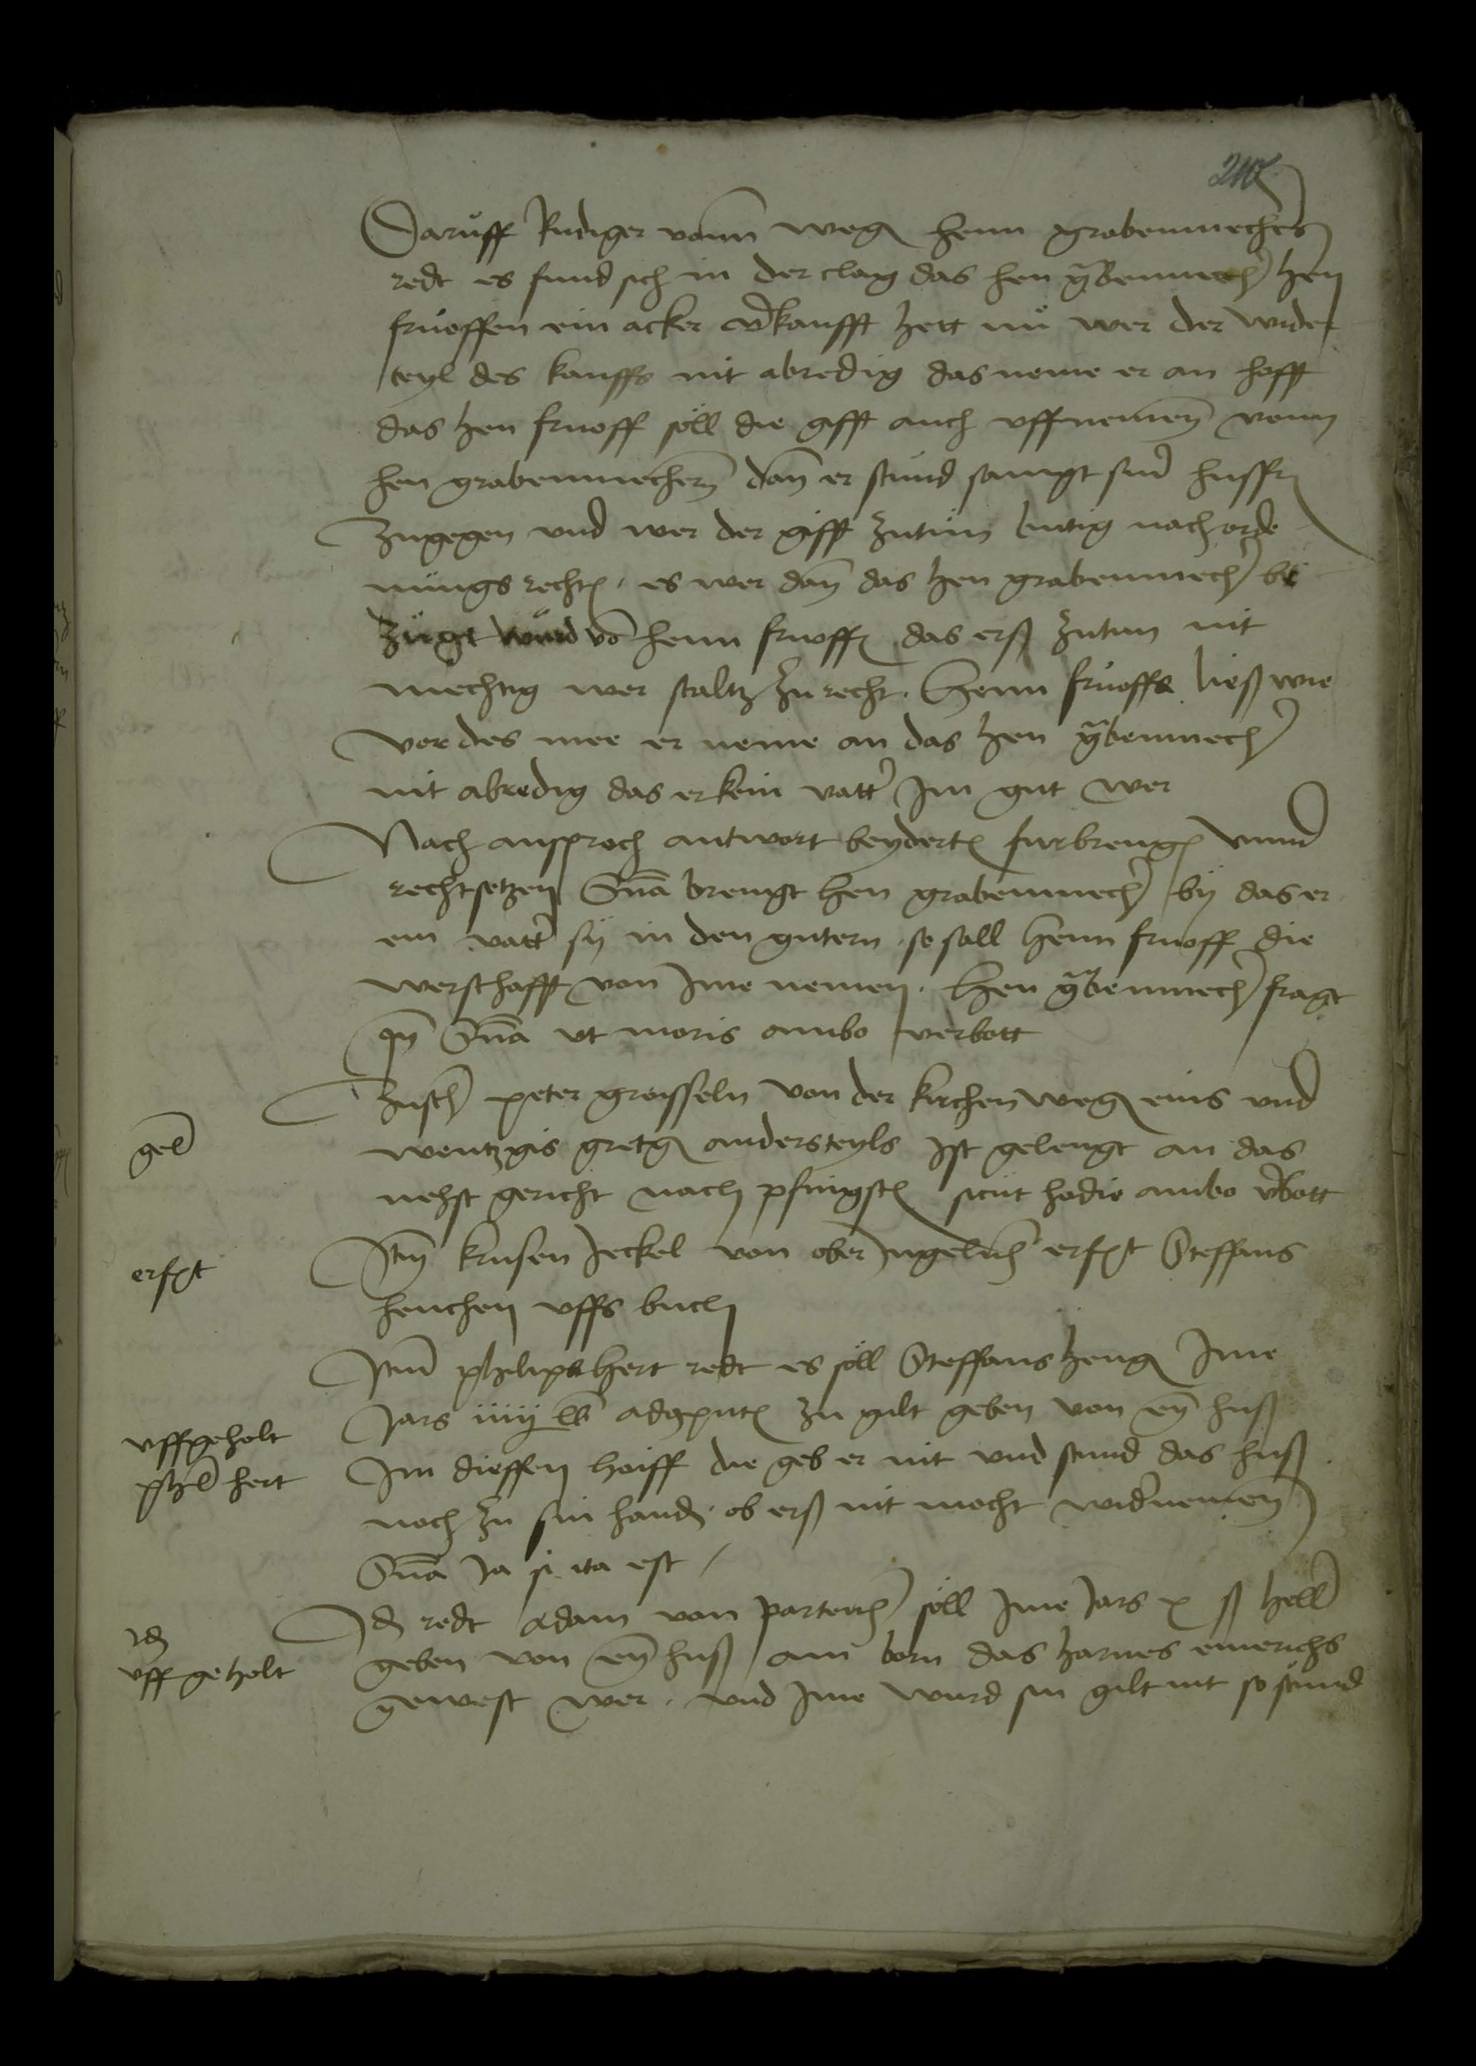 210
Daruff Rudiger vonn wegen henn grabenmechers
redt es fund sich in der clag das hen grabenmecher hen
fruoffen ein acker verkaufft hett nu wer der wider
teyl des kauffs nit abredig das neme er an hofft
das hen fruoff söll die gifft auch uffnemen vonn
hen grabenmechern dan er stund sampt sinr hussfr
zugegen und wer der gifft zutun butig nach orde
nungs rechten. es wer dan das hen grabenmecher be
zugt wurd von henn fruoffen das erß zutun nit
mechtig wer staltz zu recht. Henn fruoffs ließ wie
vor des mee er neme an das hen grabenmecher
nit abredig das er kein vatter Im gut wer
Nach ansproch antwort beyderten furbrengen unnd
rechtsetzen Sentencia brengt hen grabenmecher by das er
ein vatter sy in den gutern. so sall Henn fruoff die
werschafft von Ime nemen. Hen grabenmecher fragt
quando Sentencia ut moris ambo verbott
gelengt
Zuschen peter groisseln von der kirchen wegen eins und
wentzgis gretgen andersteyls Ist gelengt an das
nehst gericht nach pfingsten sicut hodie ambo verbott
erfolgt
Item krusen Jeckel von ober Ingelnheim erfolgt Steffans
henchen uffs buch
uffgeholt
philips hert
Item philips hert redt es söll Steffans hengin Ime
Jars iiij lb
zu gilt geben von eym huß
Im dieffen hoiff die geb er nit und stund das huß
noch zu sin handen. ob erß nit mocht widernemen
Sentencia Ja si ita est
Idem
uff geholt
Idem redt Adam von partenheim söll Ime Jars x ß heller
geben von eym huß am born das harnes emerichs
gewest wer. und Ime wurd sin gilt nit so stund